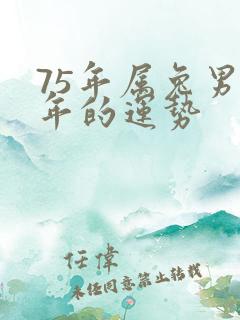 75年属兔男
年的运势
任偉
未经同意禁止转载